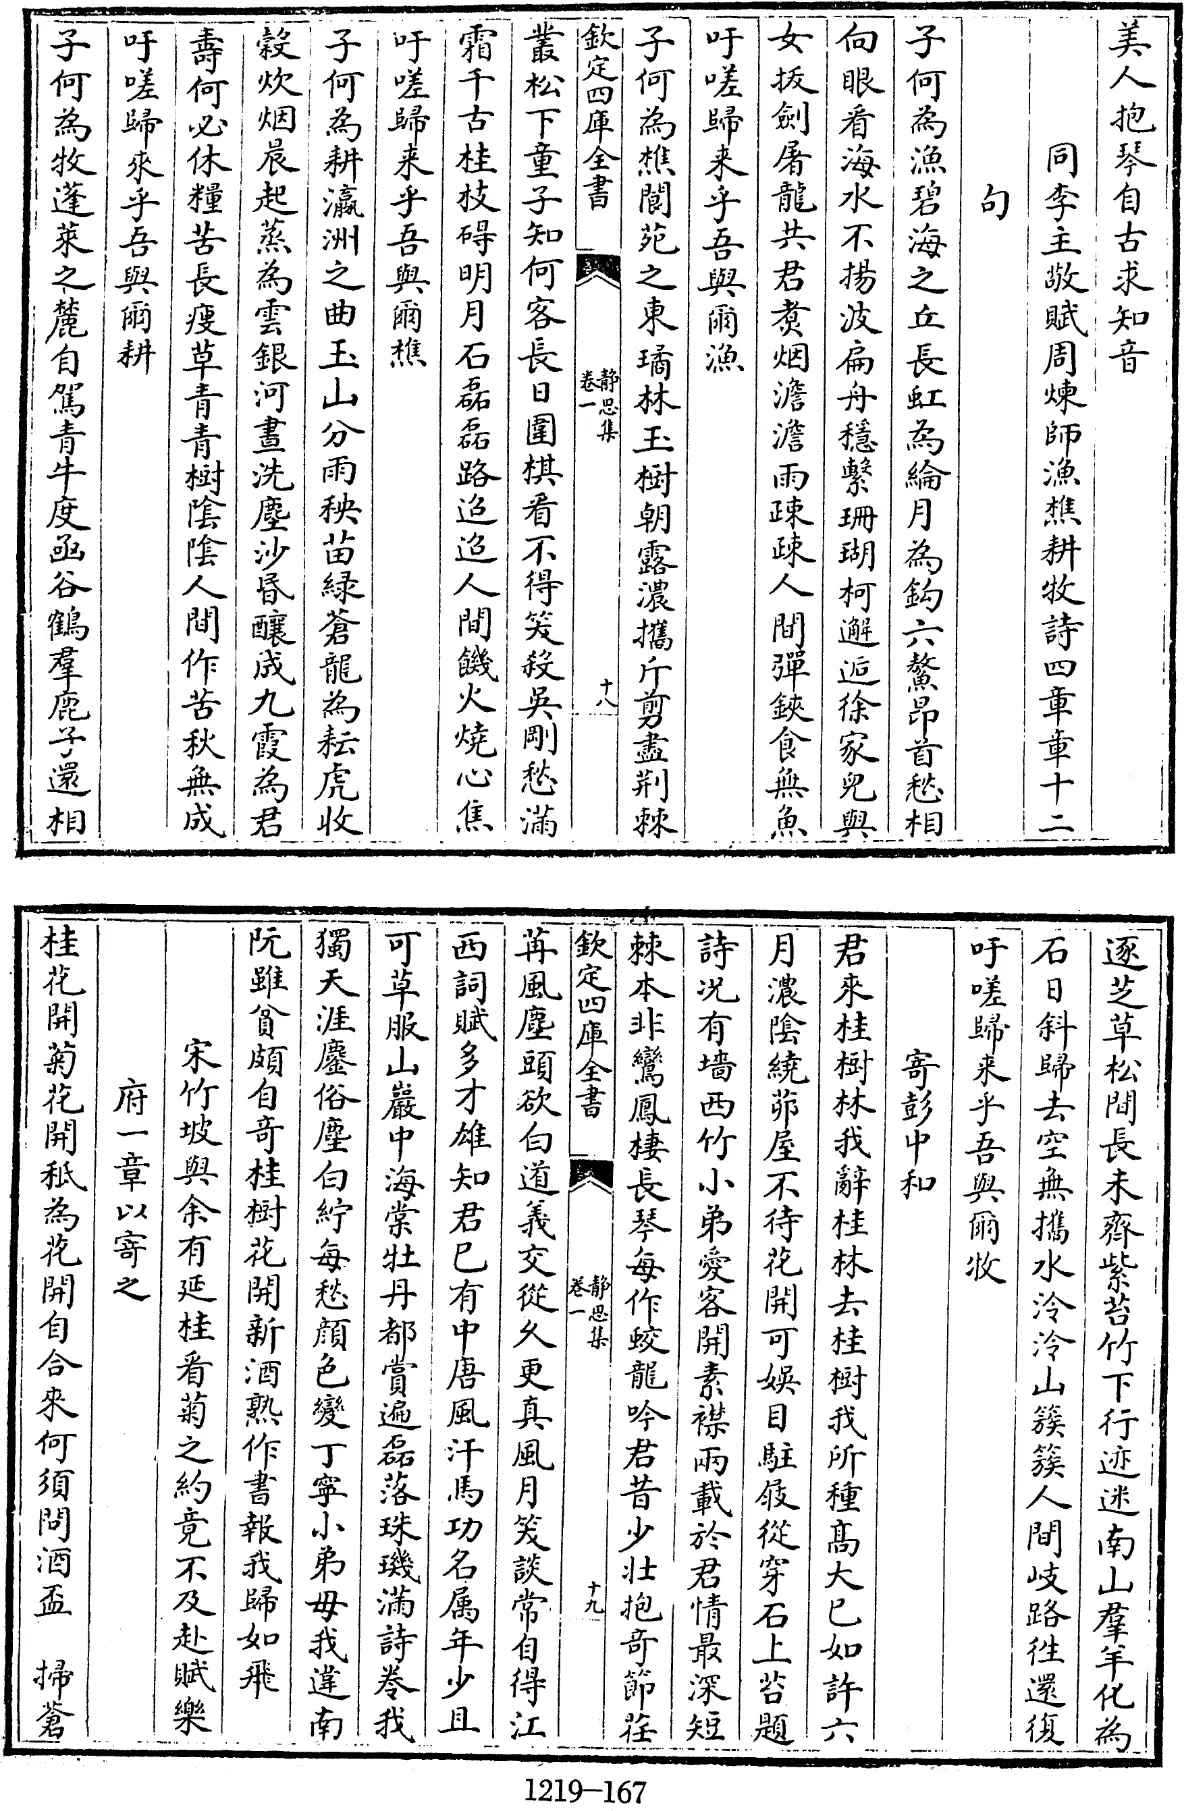 美人抱琴自古求知音
同李主敬賦周煉師漁樵耕牧詩四章章十二
句
子何為漁碧海之丘長虹為綸月為鈎六鰲昂首愁相
向眼看海水不揚波扁舟穩繫珊瑚柯邂逅徐家兒與
女拔劍屠龍共君煑烟澹澹雨疎疎人間彈鋏食無魚
吁嗟歸来乎吾與爾漁
子何為樵閬苑之東璚林玉樹朝露濃攜斤剪盡荆棘
欽定四庫全書
靜思集
卷一
十八
叢松下童子知何客長日圍棋看不得笑殺吳剛愁滿
霜千古桂枝碍明月石磊磊路迢迢人間饑火燒心焦
吁嗟歸来乎吾與爾樵
子何為耕瀛洲之曲玉山分雨秧苗緑蒼龍為耘虎收
穀炊烟晨起蒸為雲銀河晝洗塵沙昏釀成九霞為君
壽何必休糧苦長瘦草青青樹陰陰人間作苦秋無成
吁嗟歸來乎吾與爾耕
子何為牧蓬萊之麓自駕青牛度函谷鶴羣鹿子還相
逐芝草松間長未齊紫苔竹下行迹迷南山羣羊化為
石日斜歸去空無攜水泠泠山簇簇人間岐路徃還復
吁嗟歸来乎吾與爾牧
寄彭中和
君來桂樹林我辭桂林去桂樹我所種髙大已如許六
月濃陰繞茆屋不待花開可娛目駐屐從穿石上苔題
詩况有墻西竹小弟愛客開素襟兩載於君情最深短
棘本非鸞鳳棲長琴每作蛟龍吟君昔少壯抱奇節荏
欽定四庫全書
靜思集
卷一
十九
苒風塵頭欲白道義交從久更真風月笑談常自得江
西詞賦多才雄知君已有中唐風汗馬功名属年少且
可草服山巖中海棠牡丹都賞遍磊落珠璣滿詩卷我
獨天涯塵俗塵白紵每愁顔色變丁寧小弟毋我違南
阮雖貧頗自奇桂樹花開新酒熟作書報我歸如飛
宋竹坡與余有延桂看菊之約竟不及赴賦樂
府一章以寄之
桂花開菊花開秖為花開自合來何須問酒盃 掃蒼
1219—167